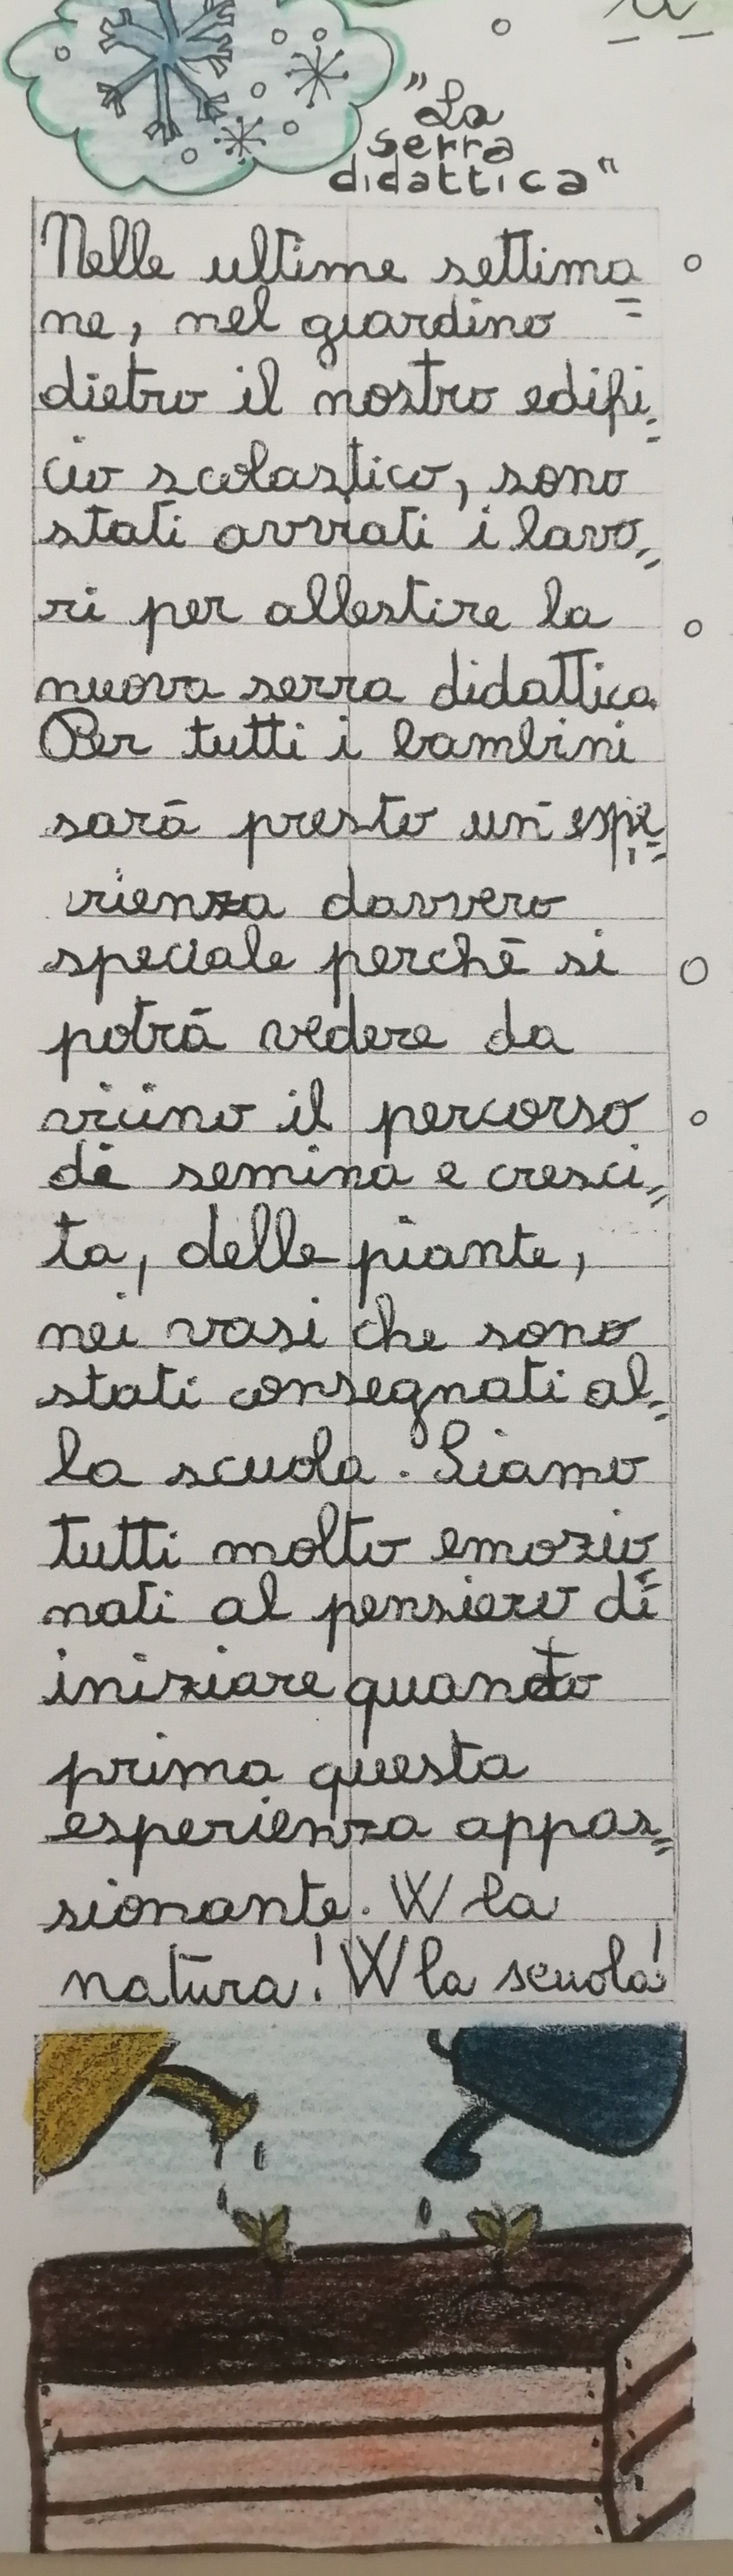 "La
serra
didattica"
Nelle ultime settima=
ne, nel giardino
dietro il nostro edifi=
cio scolastico, sono
stati avviati i lavo=
ri per allestire la
nuova serra didattica.
Per tutti i bambini
sarà presto un'espe=
rienza davvero
speciale perchè si
potrà vedere da
vicino il percorso
di semina e cresci=
ta, delle piante,
nei vasi che sono
stati consegnati al=
la scuola. Siamo
tutti molto emozio=
nati al pensiero di
iniziare quanto
prima questa
esperienza appas=
sionante. W la
natura! W la scuola!